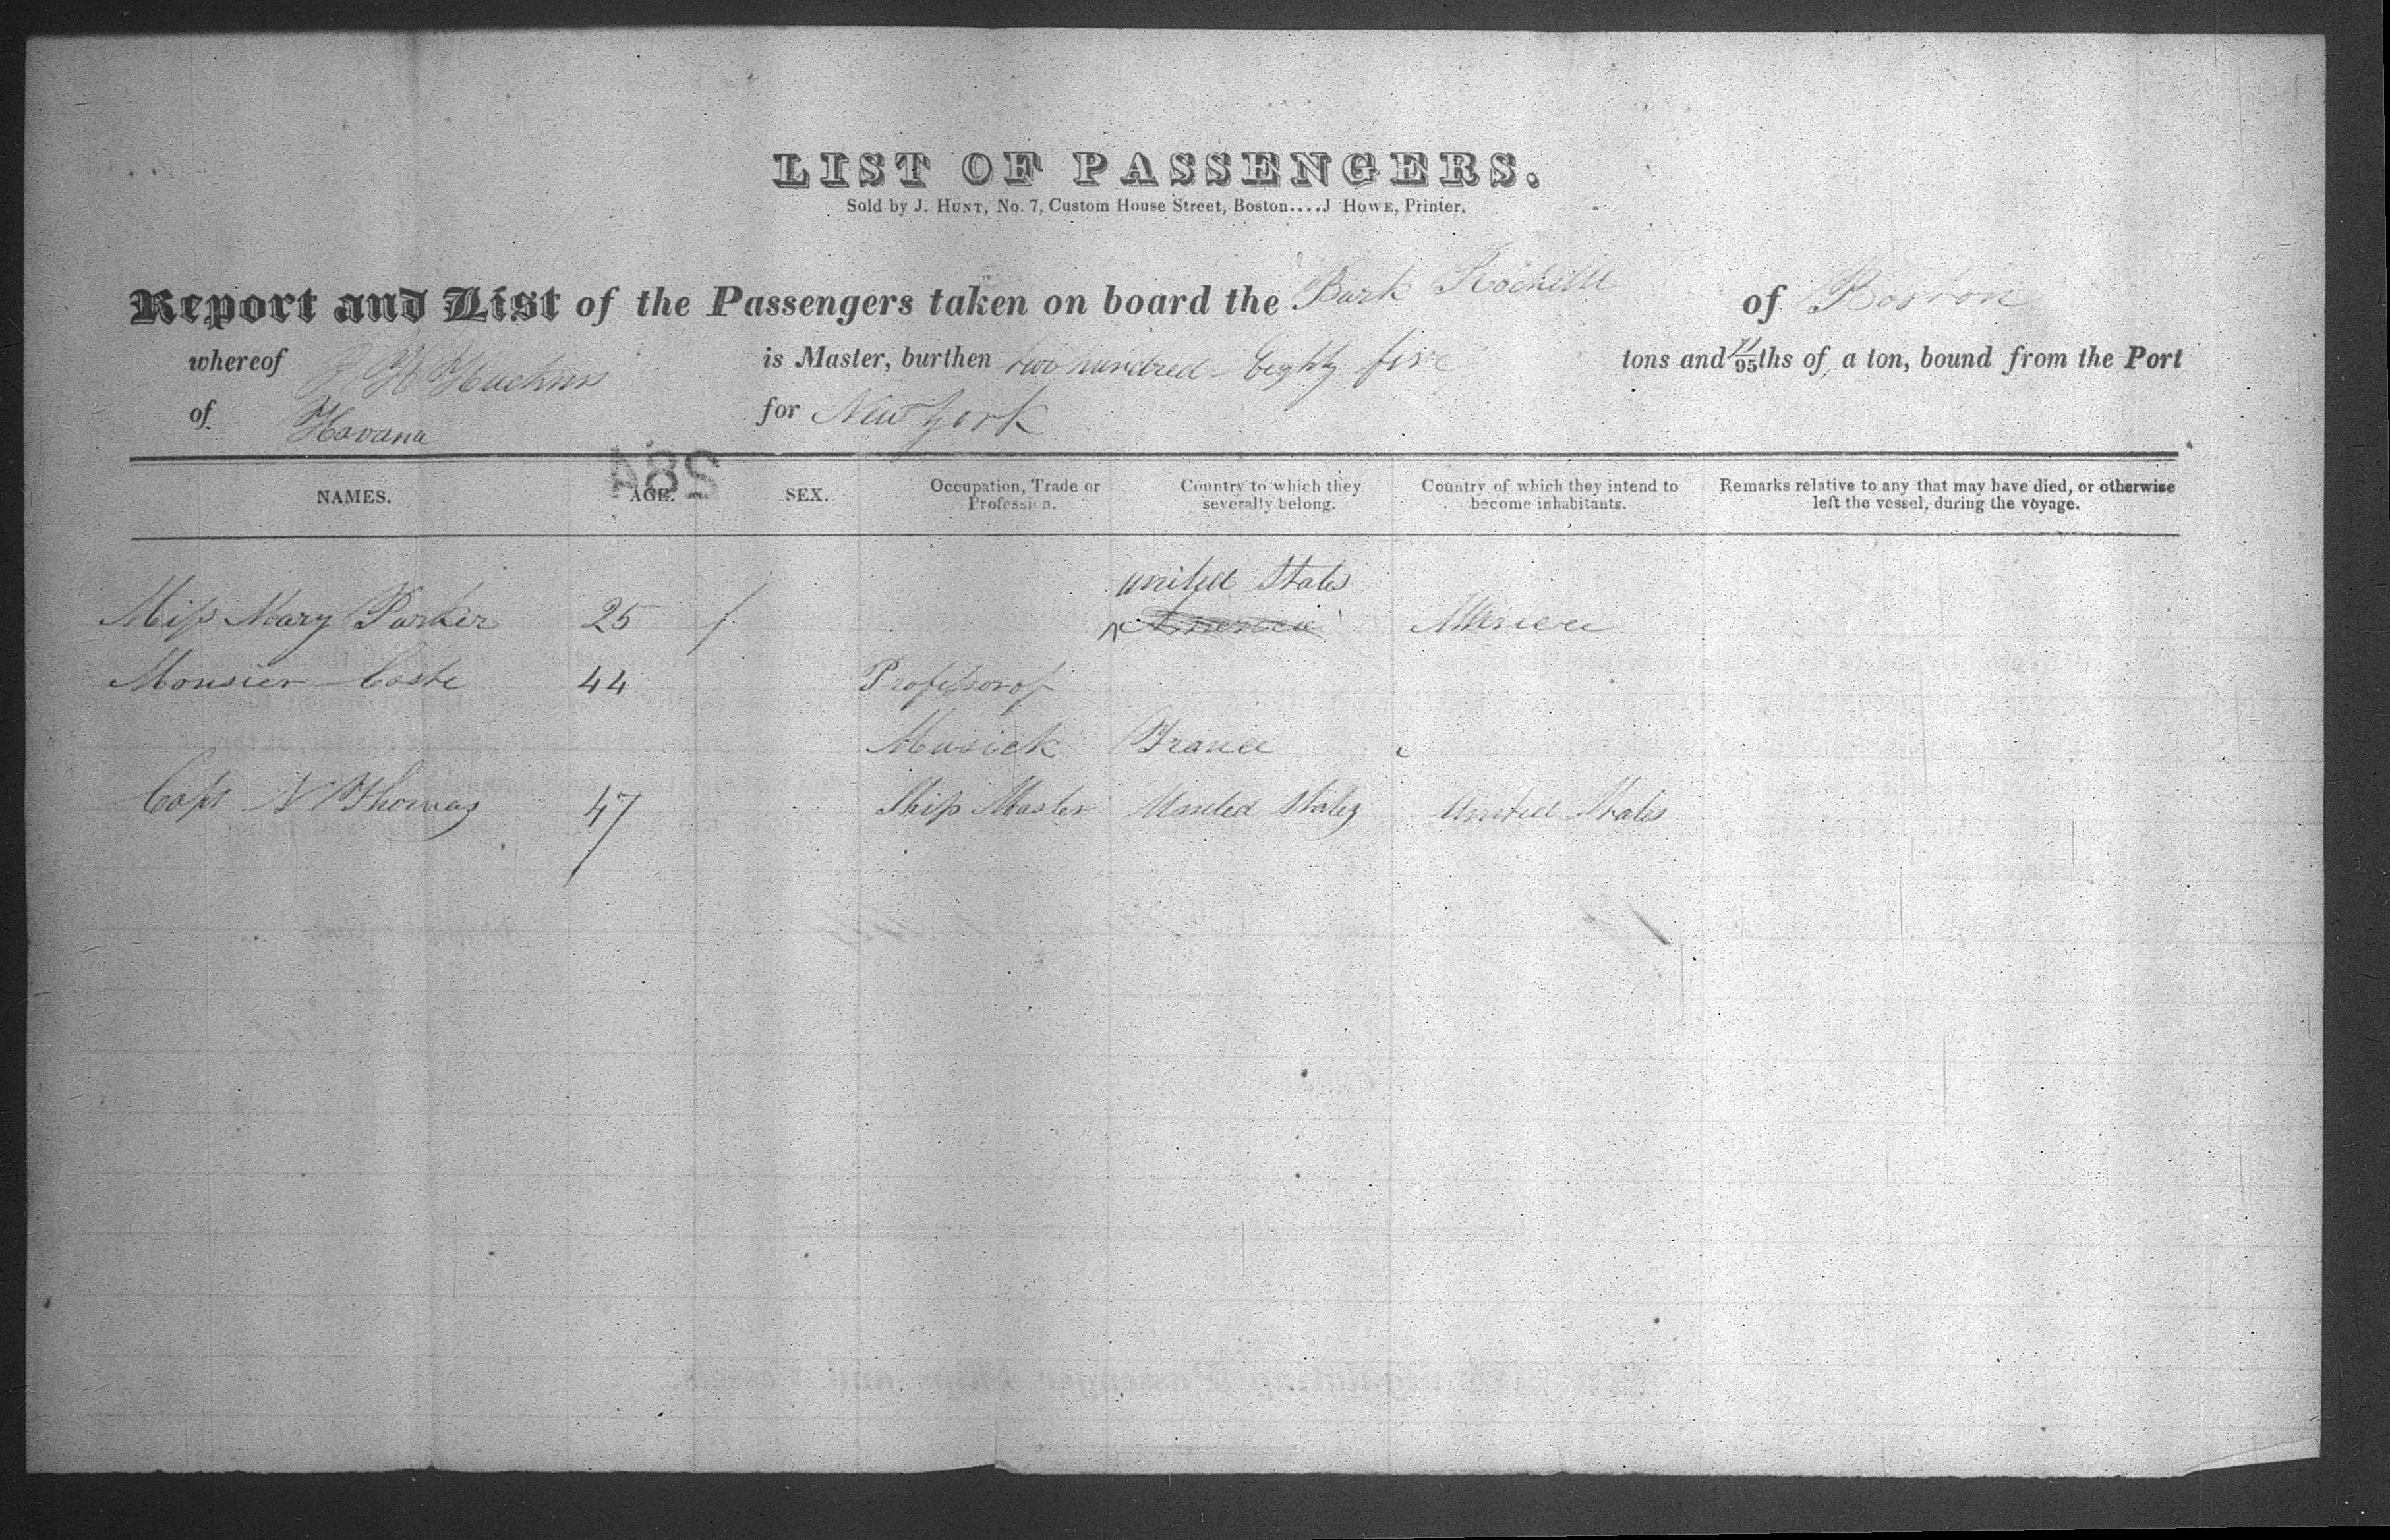 LIST OF PASSENGERS.
Sold by J. HUNT, No. 7, Custom House Street, Boston....J HOWE, Printer.
Report and List of the Passengers taken on board the Bark Rochelle of Boston
whereof is Master, burthen two hundred Eighty five tons and 71/95ths of a ton, bound from the Port
of Havana for New York
NAMES. AGE. SEX. Occupation, Trade or Profession. Country to which they severally belong. Country of which they intend to become inhabitants. Remarks relative to any that may have died, or otherwise left the vessel, during the voyage.
284
united States
Miss Mary Parker 25 f America America
Monsier Coste 44 Professor of
Musick France
Capt N Thomas 47 Ship Master United States United States